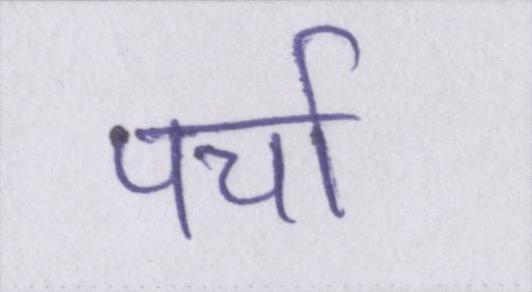 पर्चा